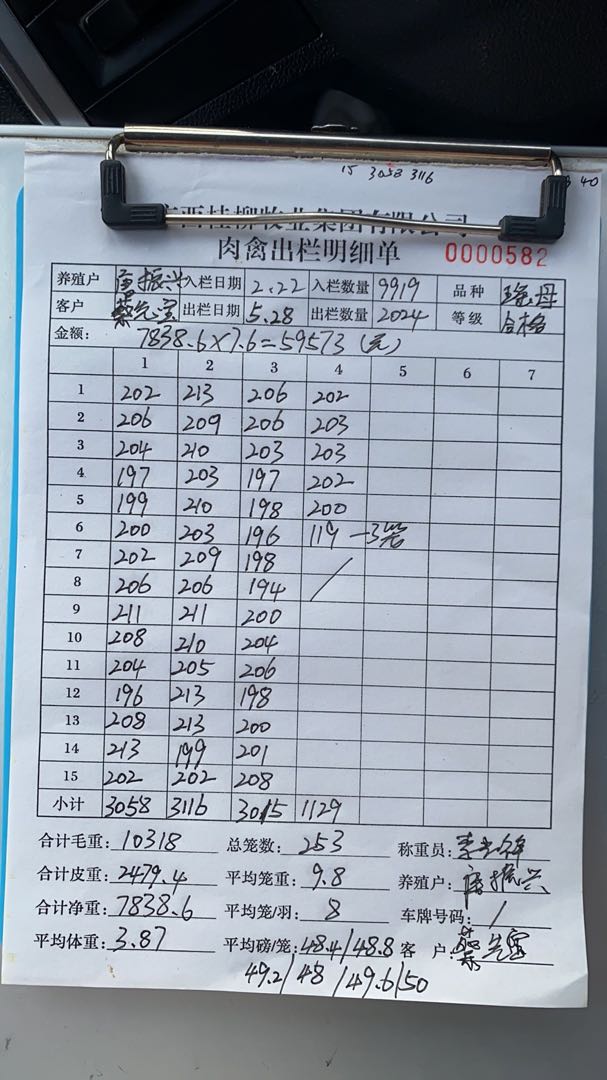 15 3058 3116 40
西桂柳牧业集团有限公司
肉禽出栏明细单 0000582
养殖户 唐振兴 入栏日期 2.22 入栏数量 9919 品种
客户 出栏日期 5.28 出栏数量 2024 等级 合格
金额: 7838.6×7.6=59573 (元)
1 2 3 4 5 6 7
1 202 213 206 202
2 206 209 206 203
3 204 210 203 203
4 197 203 197 202
5 199 210 198 200
6 200 203 196 119 -3笼
7 202 209 198
8 206 206 194
9 211 211 200
10 208 210 204
11 204 205 206
12 196 213 198
13 208 213 200
14 213 199 201
15 202 202 208
小计 3058 3116 3015 1129
合计毛重: 10318 总笼数: 253 称重员:
合计皮重: 2479.4 平均笼重: 9.8 养殖户: 唐振兴
合计净重: 7838.6 平均笼/羽: 8 车牌号码: /
平均体重: 3.87 平均磅/笼: 48.4/48.8 客 户:
49.2/48/49.6/50